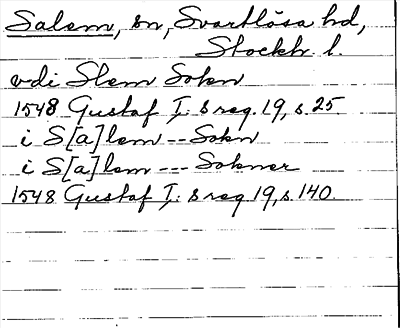 Salem, sn, Svartlösa hd,
Stockh. l.
vdi Slem Sokn
1548 Gustaf I:s reg. 19, s. 25.
i S[a]lem --- Sokn
i S[a]lem --- Sokner
1548 Gustaf I:s reg 19, s. 140.